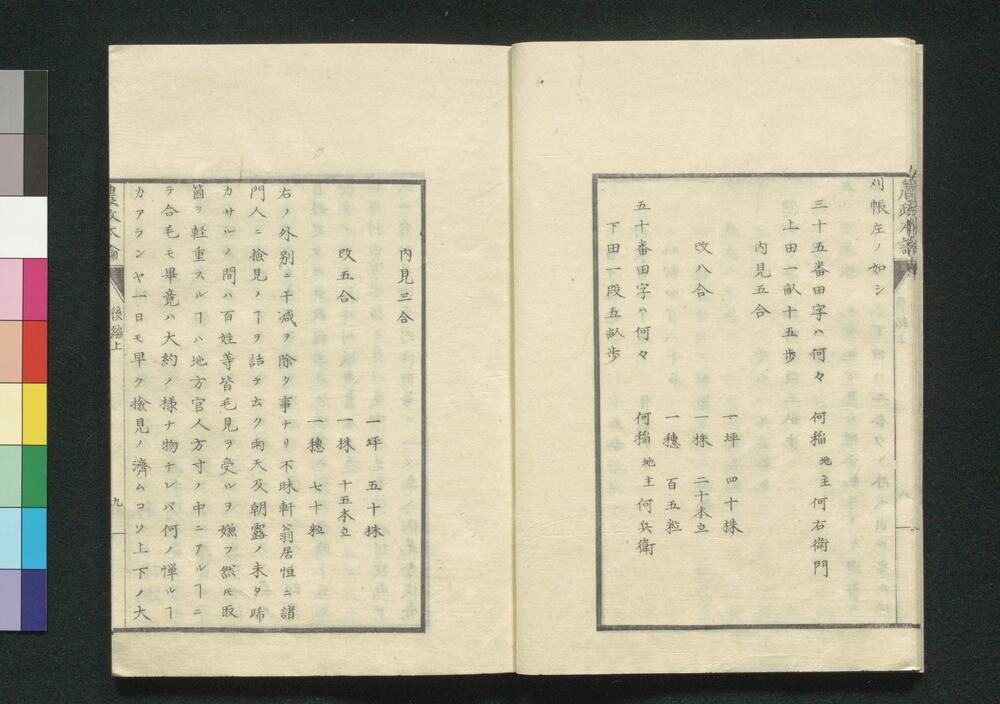 刈帳左ノ如シ
三十五番田字ハ何々 何稲 地主 何右衛門
上田一畝十五歩
内見五合
改八合
一坪 四十株
一株 二十本立
一穗 百五粒
五十番田字ハ何々 何稲 地主 何兵衛
下田一段五畝歩
内見三合
改五合
一坪 五十株
一株 十五本立
一穗 七十粒
右ノ外別ニ干減ヲ除ク事ナリ不昧軒翁居恒ニ諸
門人ニ撿見ノヿヲ話テ云ク雨天及朝露ノ未タ晞
カサルノ間ハ百姓等皆毛見ヲ受ルヲ嫌フ然モ取
箇ヲ軽重スルヿハ地方官人方寸ノ中ニアルヿニ
テ合毛モ畢竟ハ大約ノ様ナ物ナレバ何ノ憚ルヿ
カアランヤ一日モ早ク撿見ノ濟ムコソ上下ノ大
農政本論 後編上 九